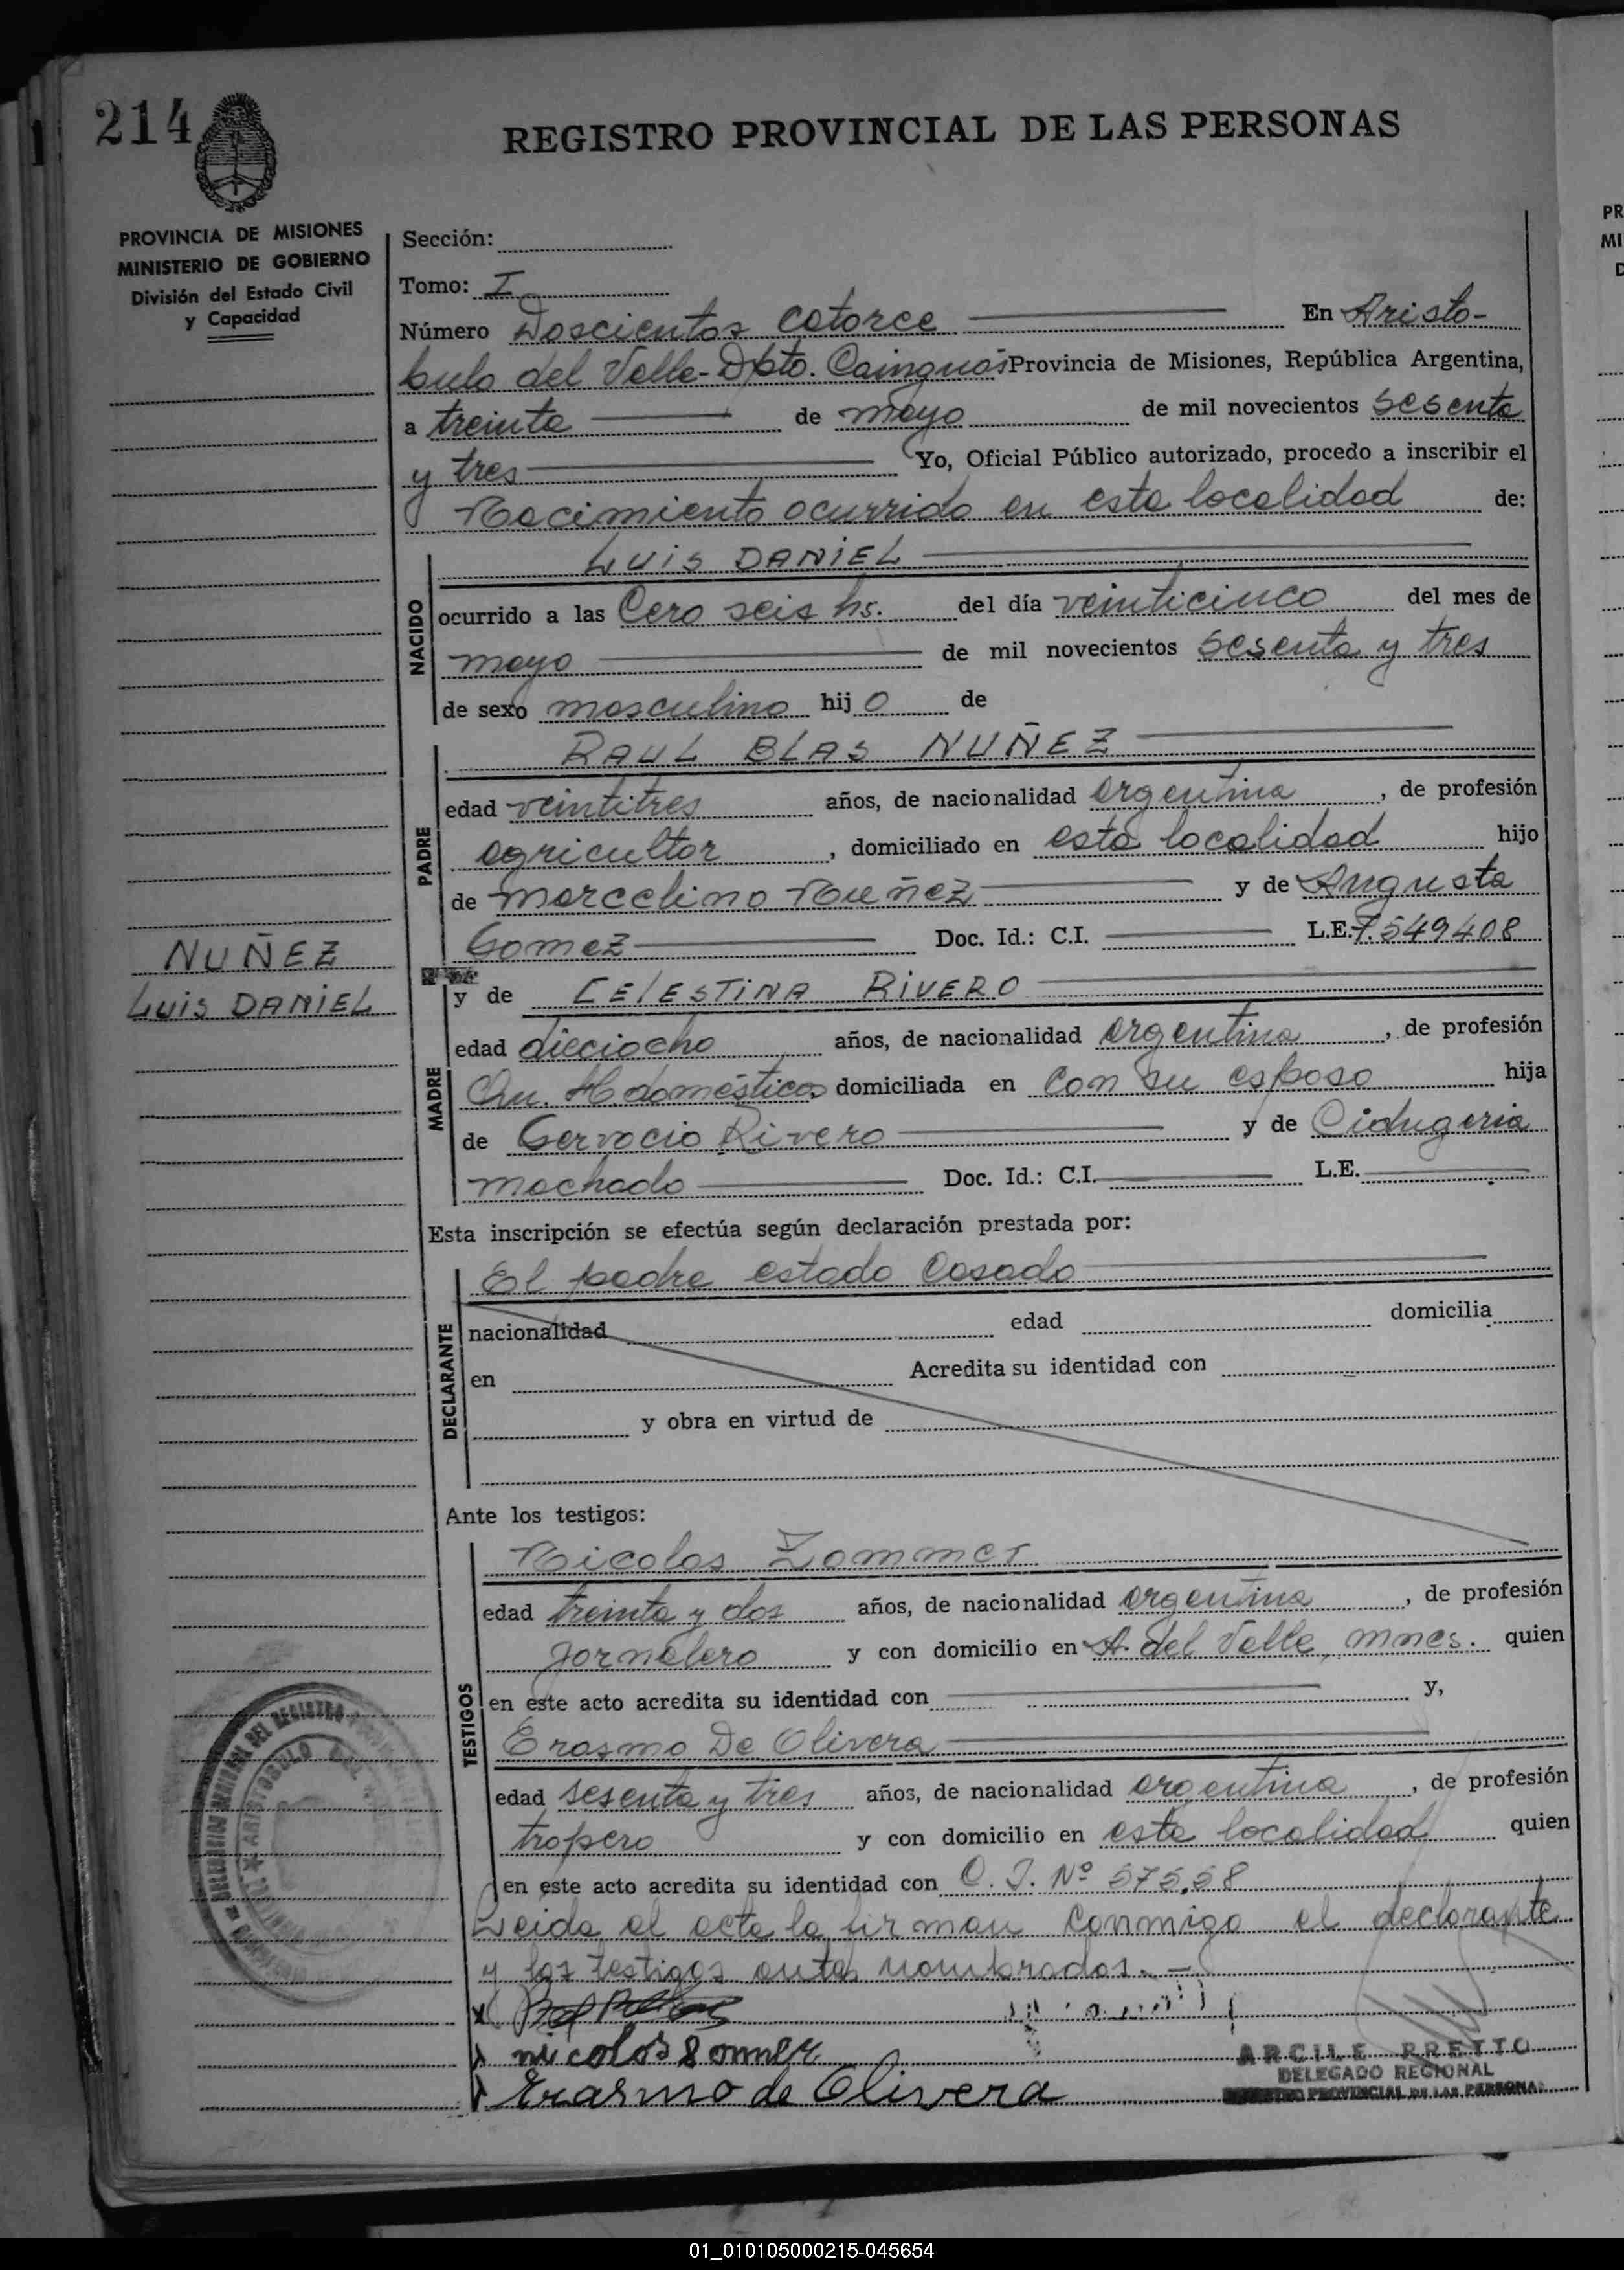 214
REGISTRO PROVINCIAL DE LAS PERSONAS
PROVINCIA DE MISIONES
MINISTERIO DE GOBIERNO
División del Estado Civil
y Capacidad
Sección:
Tomo: I
Número Doscientos catorce En Aristo-
bulo del Valle-Dpto. Cainguás Provincia de Misiones, República Argentina,
a treinta de mayo de mil novecientos sesenta
y tres Yo, Oficial Público autorizado, procedo a inscribir el
Nacimiento ocurrido en esta localidad de:
NACIDO
LUIS DANIEL
ocurrido a las Cero seis hs. del día veinticinco del mes de
mayo de mil novecientos sesenta y tres
de sexo masculino hijo de
PADRE
RAUL BLAS NUÑEZ
edad veintitres años, de nacionalidad argentina, de profesión
agricultor, domiciliado en esta localidad hijo
de Marcelino Nuñez y de Augusta
Gomez Doc. Id.: C.I. L.E. 7.549408
NUÑEZ
LUIS DANIEL
MADRE
y de CELESTINA RIVERO
edad dieciocho años, de nacionalidad argentina, de profesión
domésticos domiciliada en con su esposo hija
de Gervacio Rivero y de
Machado Doc. Id.: C.I. L.E.
Esta inscripción se efectúa según declaración prestada por:
DECLARANTE
El padre estado casado
nacionalidad edad domicilia
en Acredita su identidad con
y obra en virtud de
Ante los testigos:
TESTIGOS
Nicolas Zommer
edad treinta y dos años, de nacionalidad argentina, de profesión
Jornalero y con domicilio en A. del Valle, Mnes. quien
en este acto acredita su identidad con y,
Erasmo De Olivera
edad sesenta y tres años, de nacionalidad argentina, de profesión
tropero y con domicilio en esta localidad quien
en este acto acredita su identidad con C. I. Nº 575.58
Leida el acta la firman conmigo el declarante
y los testigos antes nombrados.-
nicolas Sommer
Erasmo de Olivera
DELEGADO REGIONAL
REGISTRO PROVINCIAL DE LAS PERSONAS
01_010105000215-045654